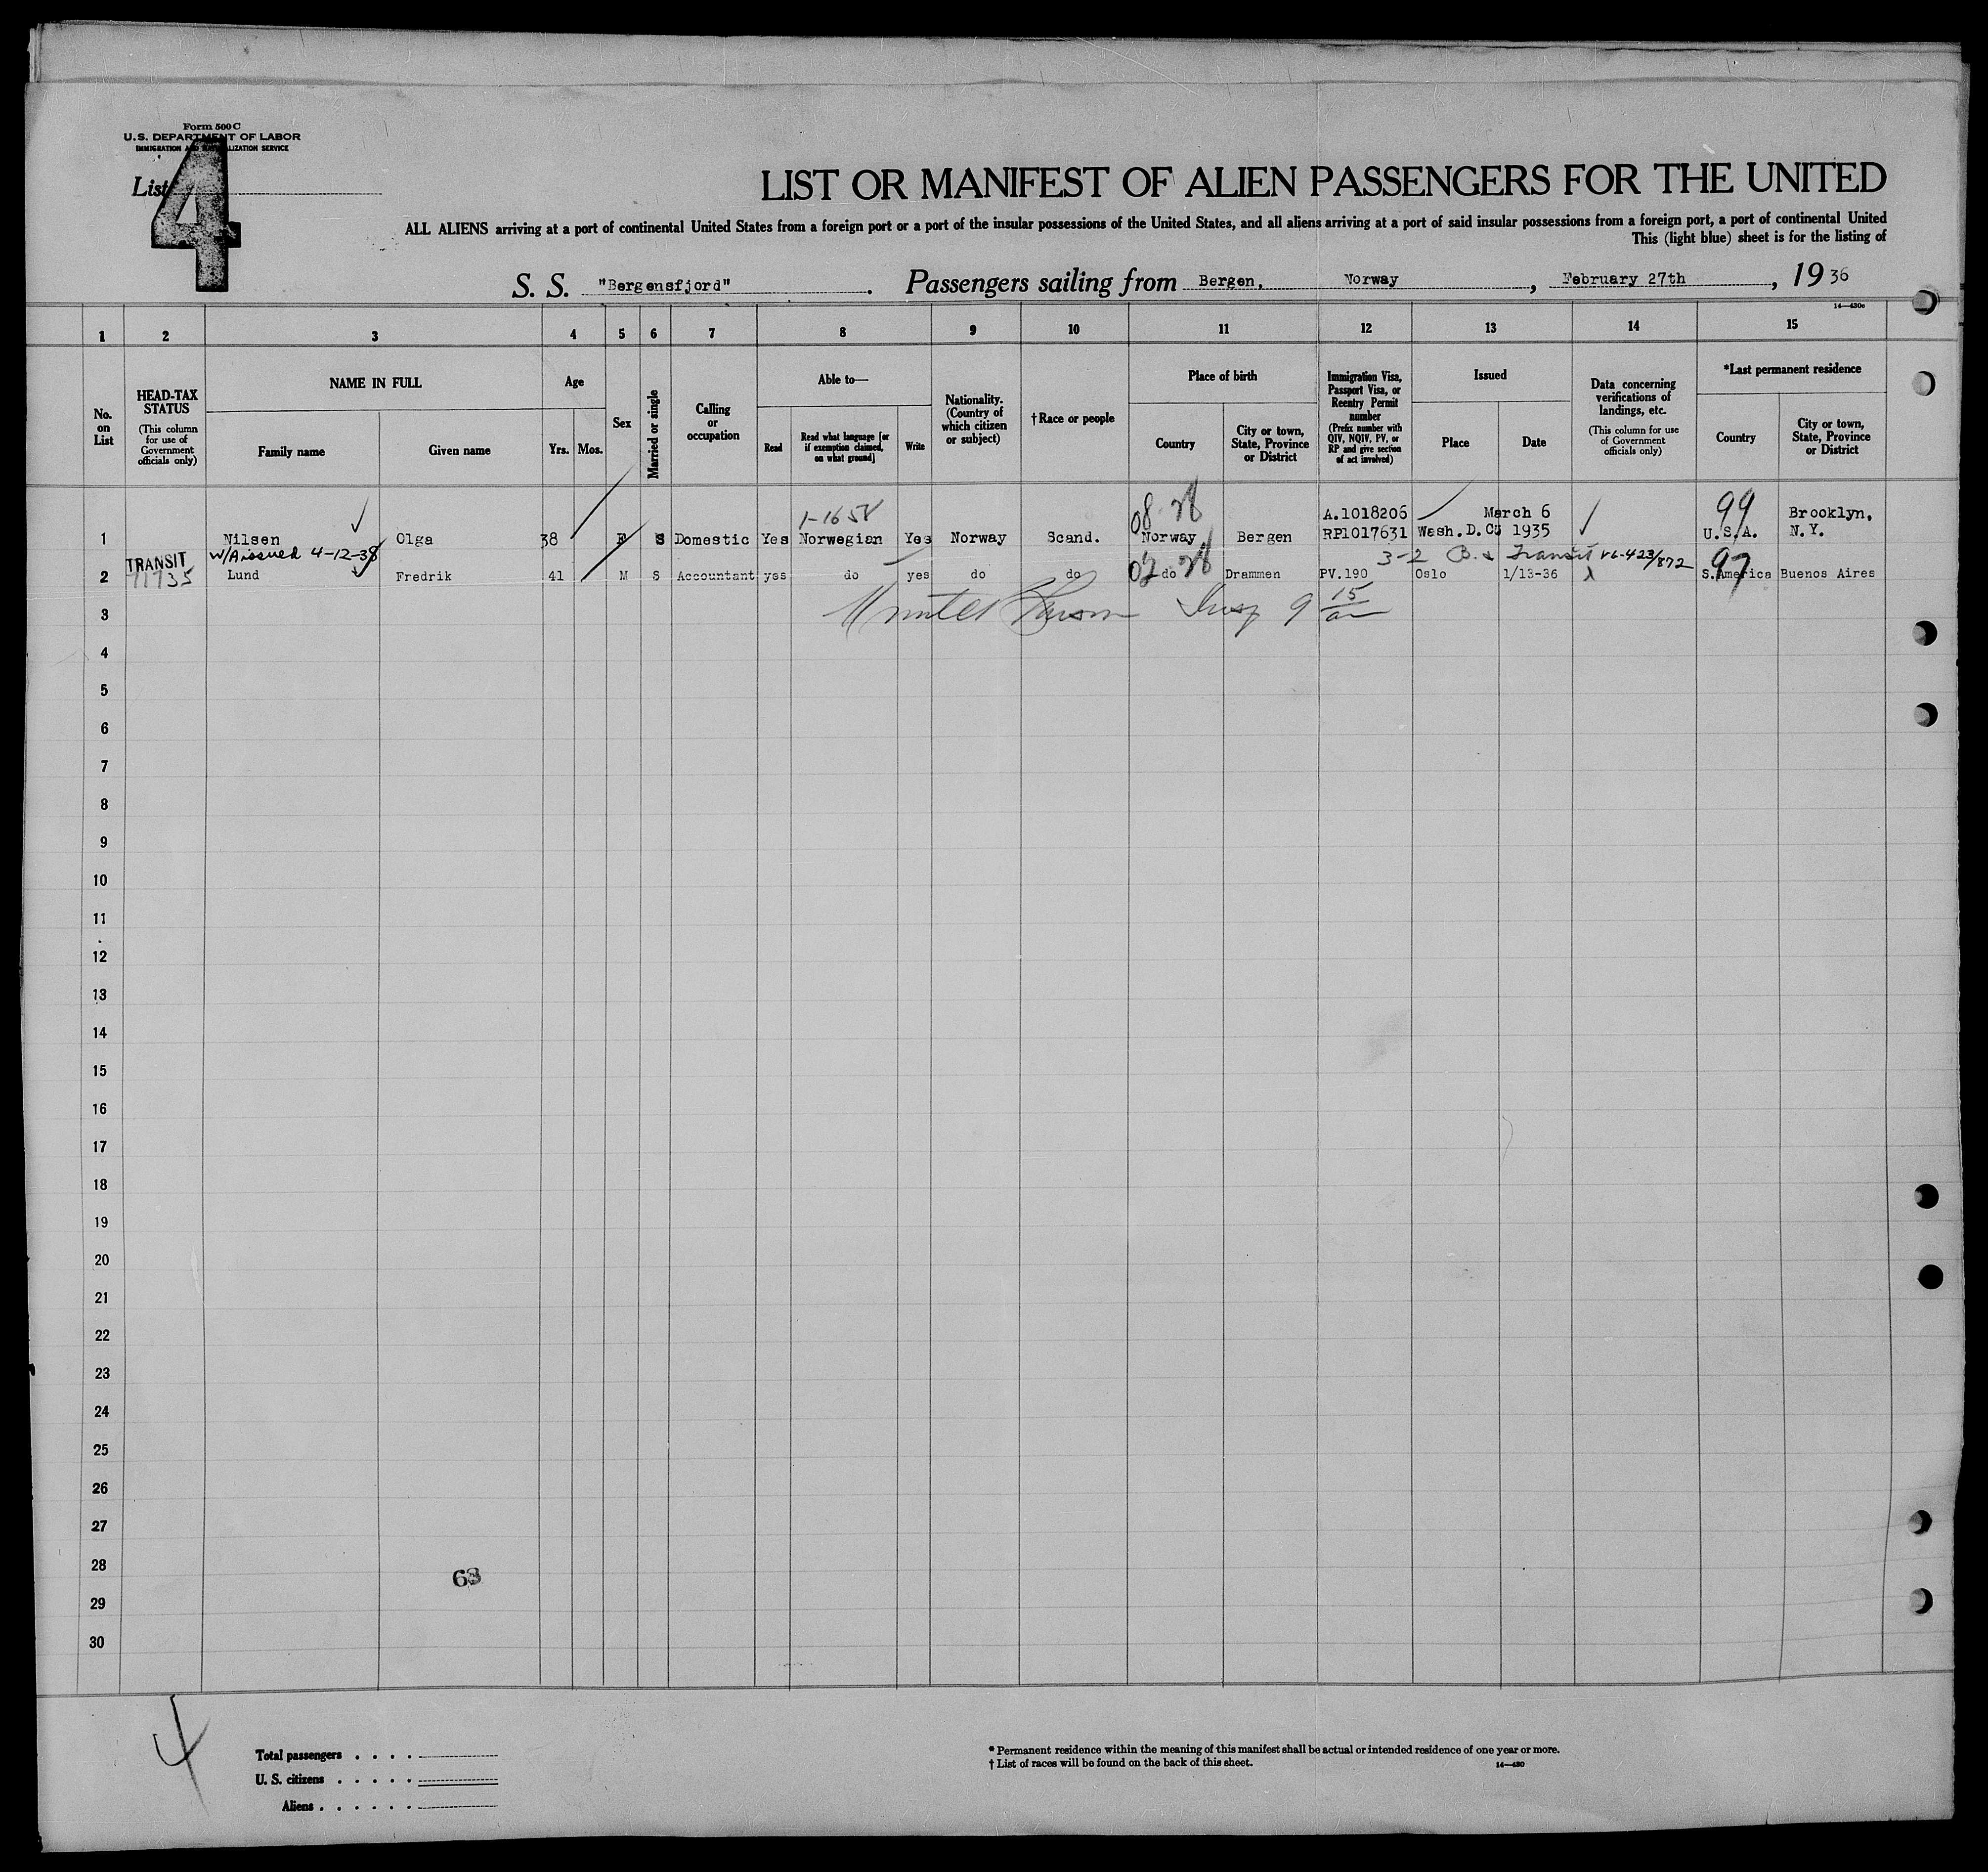 Form 500 C
U.S. DEPARTMENT OF LABOR
IMMIGRATION AND NATURALIZATION SERVICE
List 4
LIST OR MANIFEST OF ALIEN PASSENGERS FOR THE UNITED
ALL ALIENS arriving at a port of continental United States from a foreign port or a port of the insular possessions of the United States, and all aliens arriving at a port of said insular possessions from a foreign port, a port of continental United
This (light blue) sheet is for the listing of
S. S. "Bergensfjord". Passengers sailing from Bergen, Norway, February 27th, 1936
14—430c
1 2 3 4 5 6 7 8 9 10 11 12 13 14 15
No. on List
HEAD-TAX STATUS
(This column for use of Government officials only)
NAME IN FULL
Family name
Given name
Age
Yrs. Mos.
Sex
Married or single
Calling or occupation
Able to—
Read
Read what language [or if exemption claimed, on what ground]
Write
Nationality. (Country of which citizen or subject)
† Race or people
Place of birth
Country
City or town, State, Province or District
Immigration Visa, Passport Visa, or Reentry Permit number
(Prefix number with QIV, NQIV, PV, or RP and give section of act involved)
Issued
Place
Date
Data concerning verifications of landings, etc.
(This column for use of Government officials only)
*Last permanent residence
Country
City or town, State, Province or District
1-1658 08 28 A.1018206 March 6 99 Brooklyn,
1 Nilsen Olga 38 F S Domestic Yes Norwegian Yes Norway Scand. Norway Bergen RP1017631 Wash. D.C. 1935 U.S.A. N.Y.
TRANSIT W/A issued 4-12-38 3-2 B. & Transit V6-423/872
2 71735 Lund Fredrik 41 M S Accountant yes do yes do do 02 do 28 Drammen PV.190 Oslo 1/13-36 97 S.America Buenos Aires
3 Insp 9 15
4
5
6
7
8
9
10
11
12
13
14
15
16
17
18
19
20
21
22
23
24
25
26
27
28
63
29
30
4
Total passengers . . . .
U. S. citizens . . . . .
Aliens . . . . . .
* Permanent residence within the meaning of this manifest shall be actual or intended residence of one year or more.
† List of races will be found on the back of this sheet.
14—430